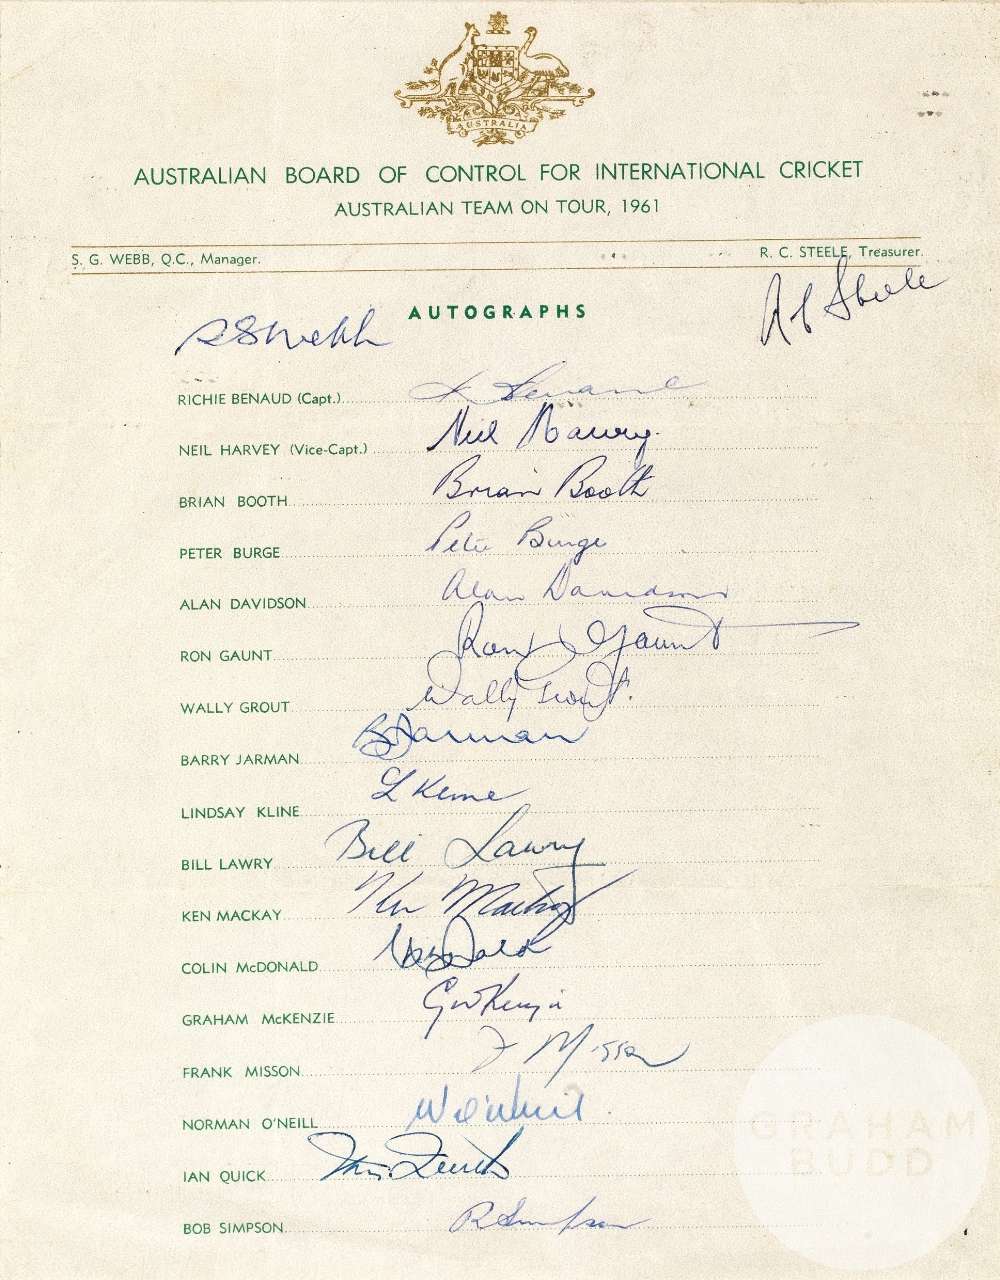 AUSTRALIA
AUSTRALIAN BOARD OF CONTROL FOR INTERNATIONAL CRICKET
AUSTRALIAN TEAM ON TOUR, 1961
S. G. WEBB, Q.C., Manager. R. C. STEELE, Treasurer.
AUTOGRAPHS
S G Webb
R C Steele
RICHIE BENAUD (Capt.) R Benaud
NEIL HARVEY (Vice-Capt.) Neil Harvey
BRIAN BOOTH Brian Booth
PETER BURGE Peter Burge
ALAN DAVIDSON Alan Davidson
RON GAUNT Ron Gaunt
WALLY GROUT Wally Grout
BARRY JARMAN B Jarman
LINDSAY KLINE L Kline
BILL LAWRY Bill Lawry
KEN MACKAY Ken Mackay
COLIN McDONALD
GRAHAM McKENZIE G McKenzie
FRANK MISSON F Misson
NORMAN O'NEILL N O'Neill
IAN QUICK Ian Quick
BOB SIMPSON R Simpson
GRAHAM
BUDD